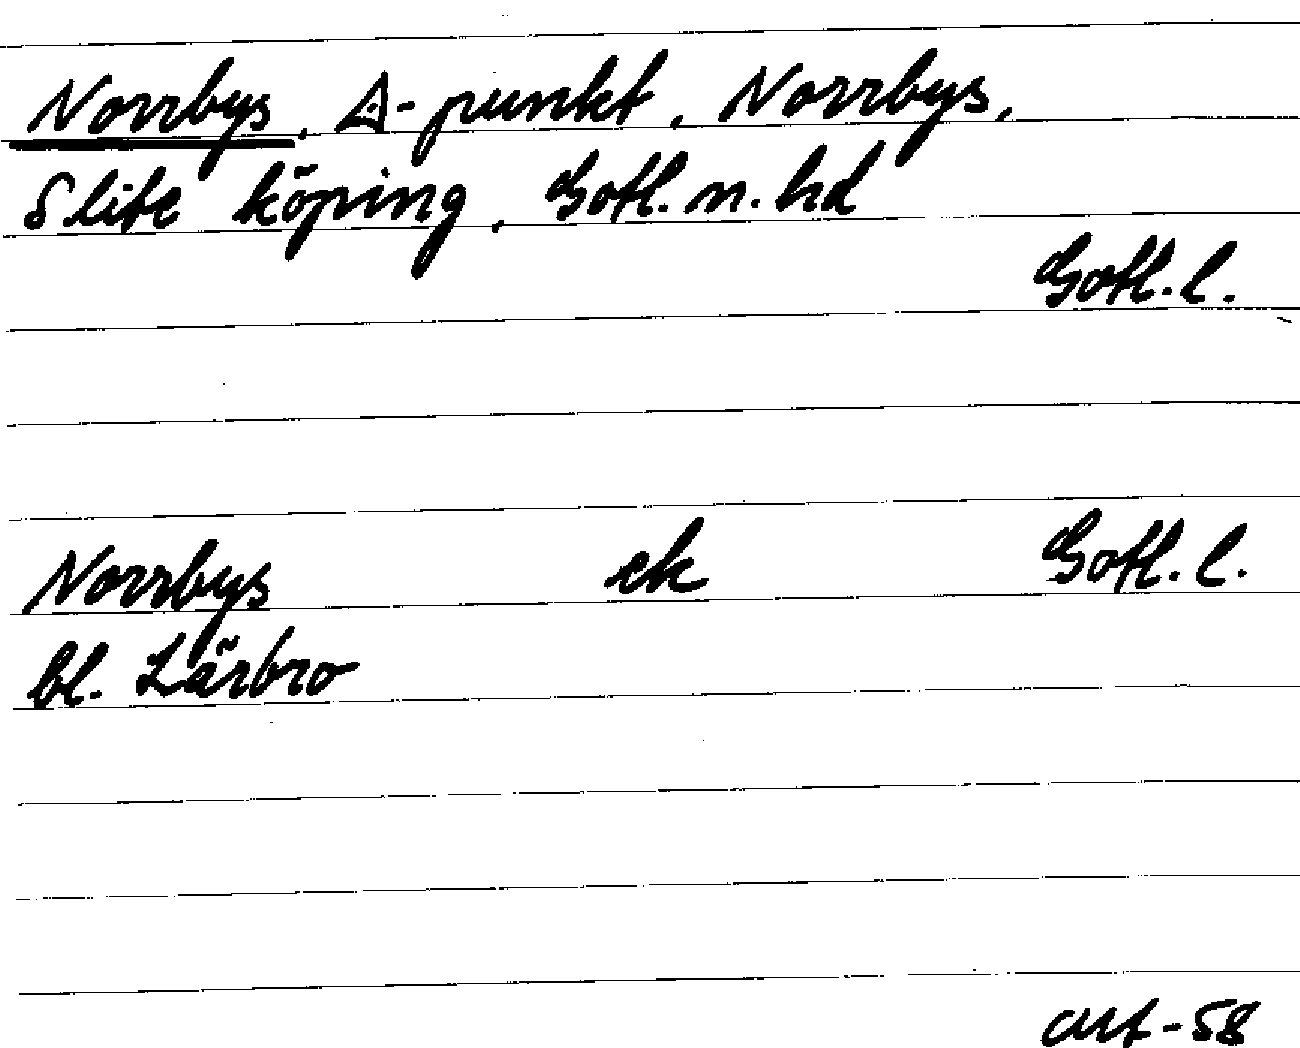 Norrbys, △-punkt, Norrbys,
Slite köping, Gotl. n. hd
Gotl. l.
Norrbys ek Gotl. l.
bl. Lärbro
-58